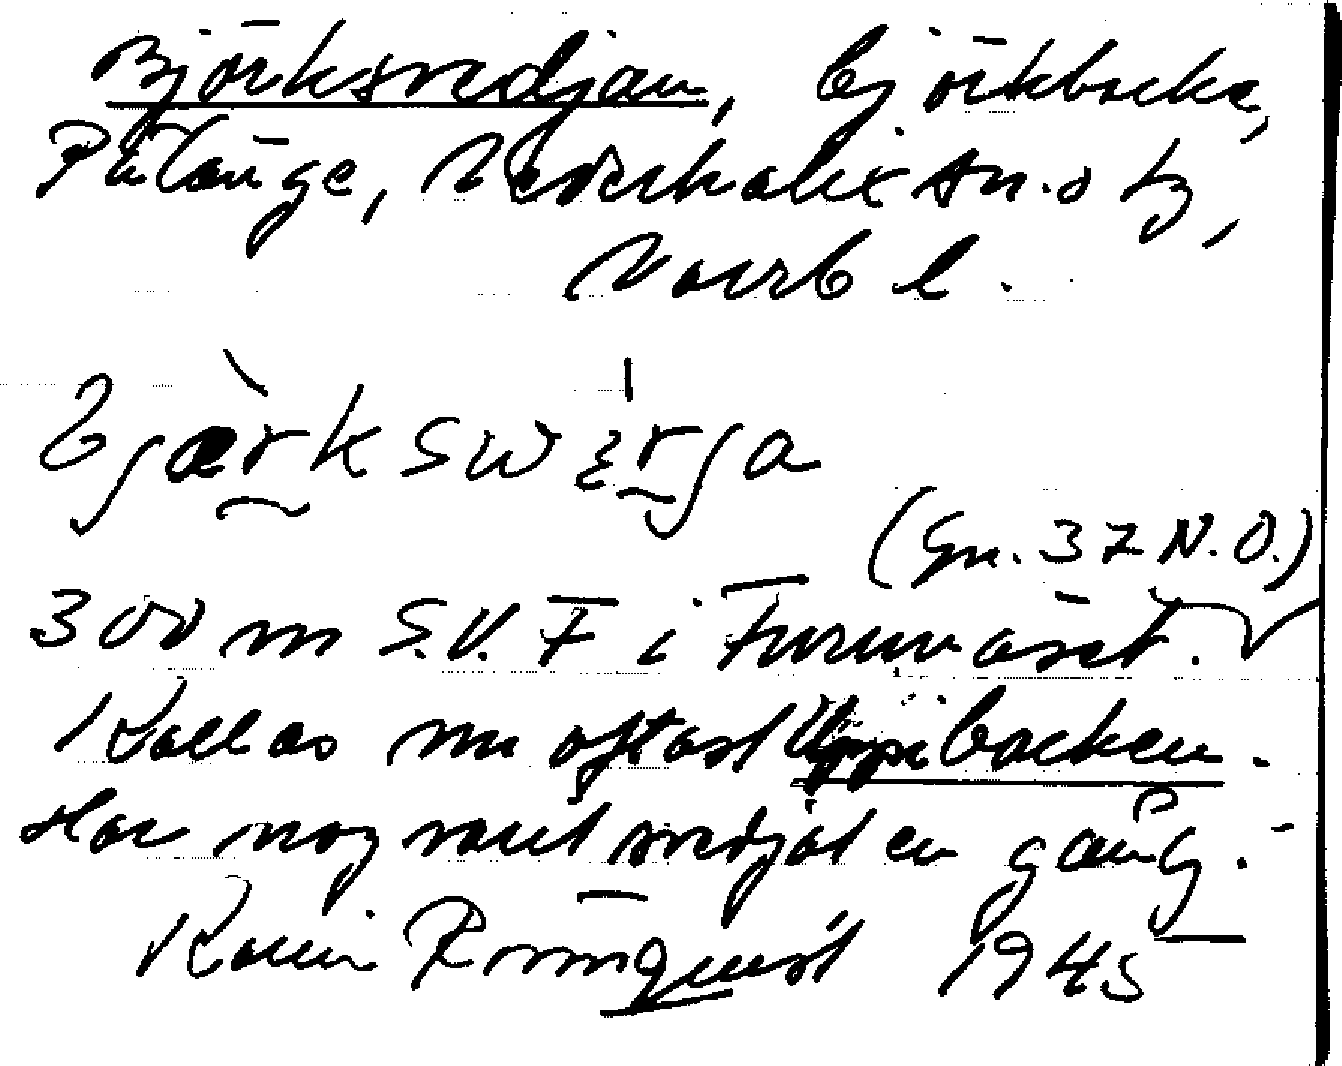 Björksvedjan, björkbacke,
Pålänge, Nederkalix sn. o tg,
Norrb l.
bjærkswɛrja
(Gn. 37 N.O.)
300 m S.V. F i Furunäset.
Kallas nu oftast Uppibacken.
Har nog varit svedjat en gång.
Karin Rönnquist 1945